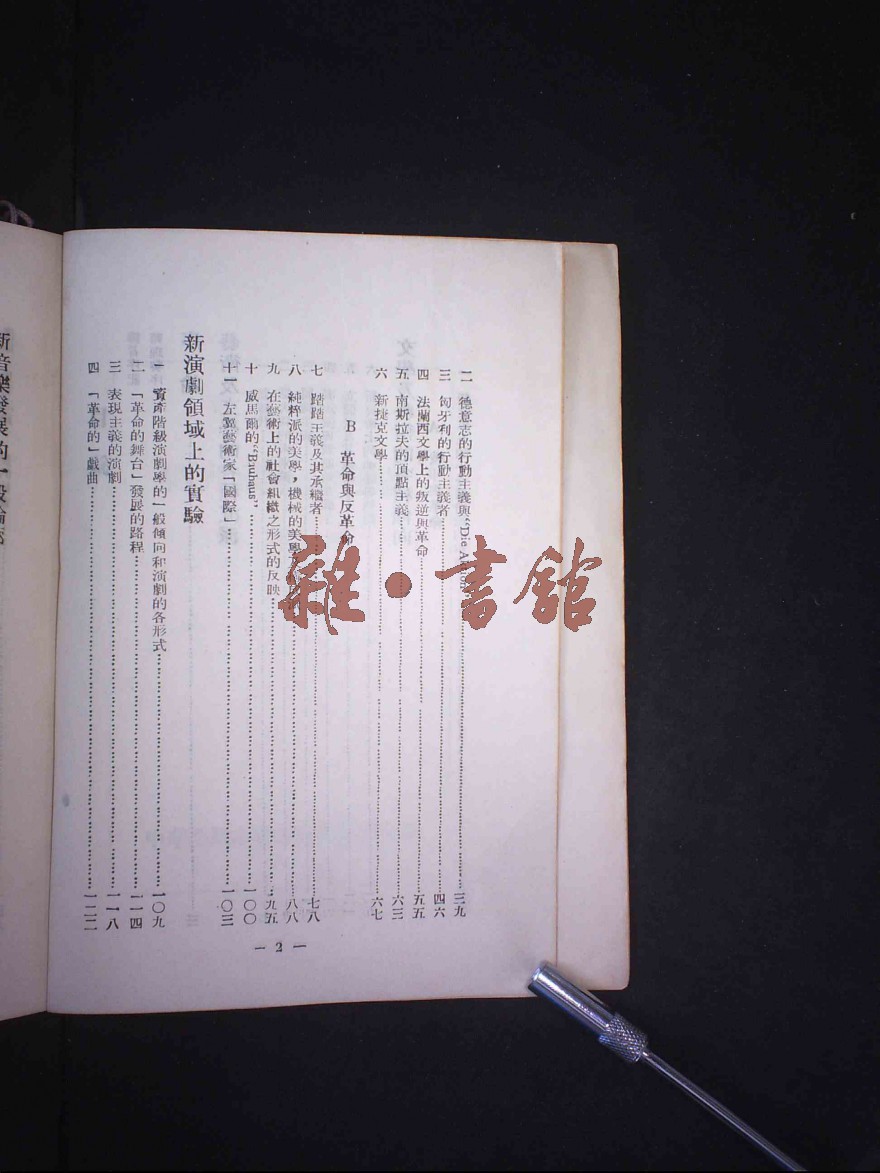 二 德意志的行動主義與“Die A…………三九
三 匈牙利的行動主義者…………四六
四 法蘭西文學上的叛逆與革命…………五五
五 南斯拉夫的頂點主義…………六三
六 新捷克文學…………六七
B 革命與反革命
七 踏踏主義及其承繼者…………七八
八 純粹派的美學，機械的美學…………八八
九 在藝術上的社會組織之形式的反映…………九五
十 威馬爾的“Bhuhaus”…………一〇〇
十一 左翼藝術家「國際」…………一〇三
新演劇領域上的實驗
一 資產階級演劇學的一般傾向和演劇的各形式…………一〇九
二 「革命的舞台」發展的路程…………一一四
三 表現主義的演劇…………一一八
四 「革命的」戲曲…………一二二
— 2 —
新音樂發展的一般論究
雜·書館